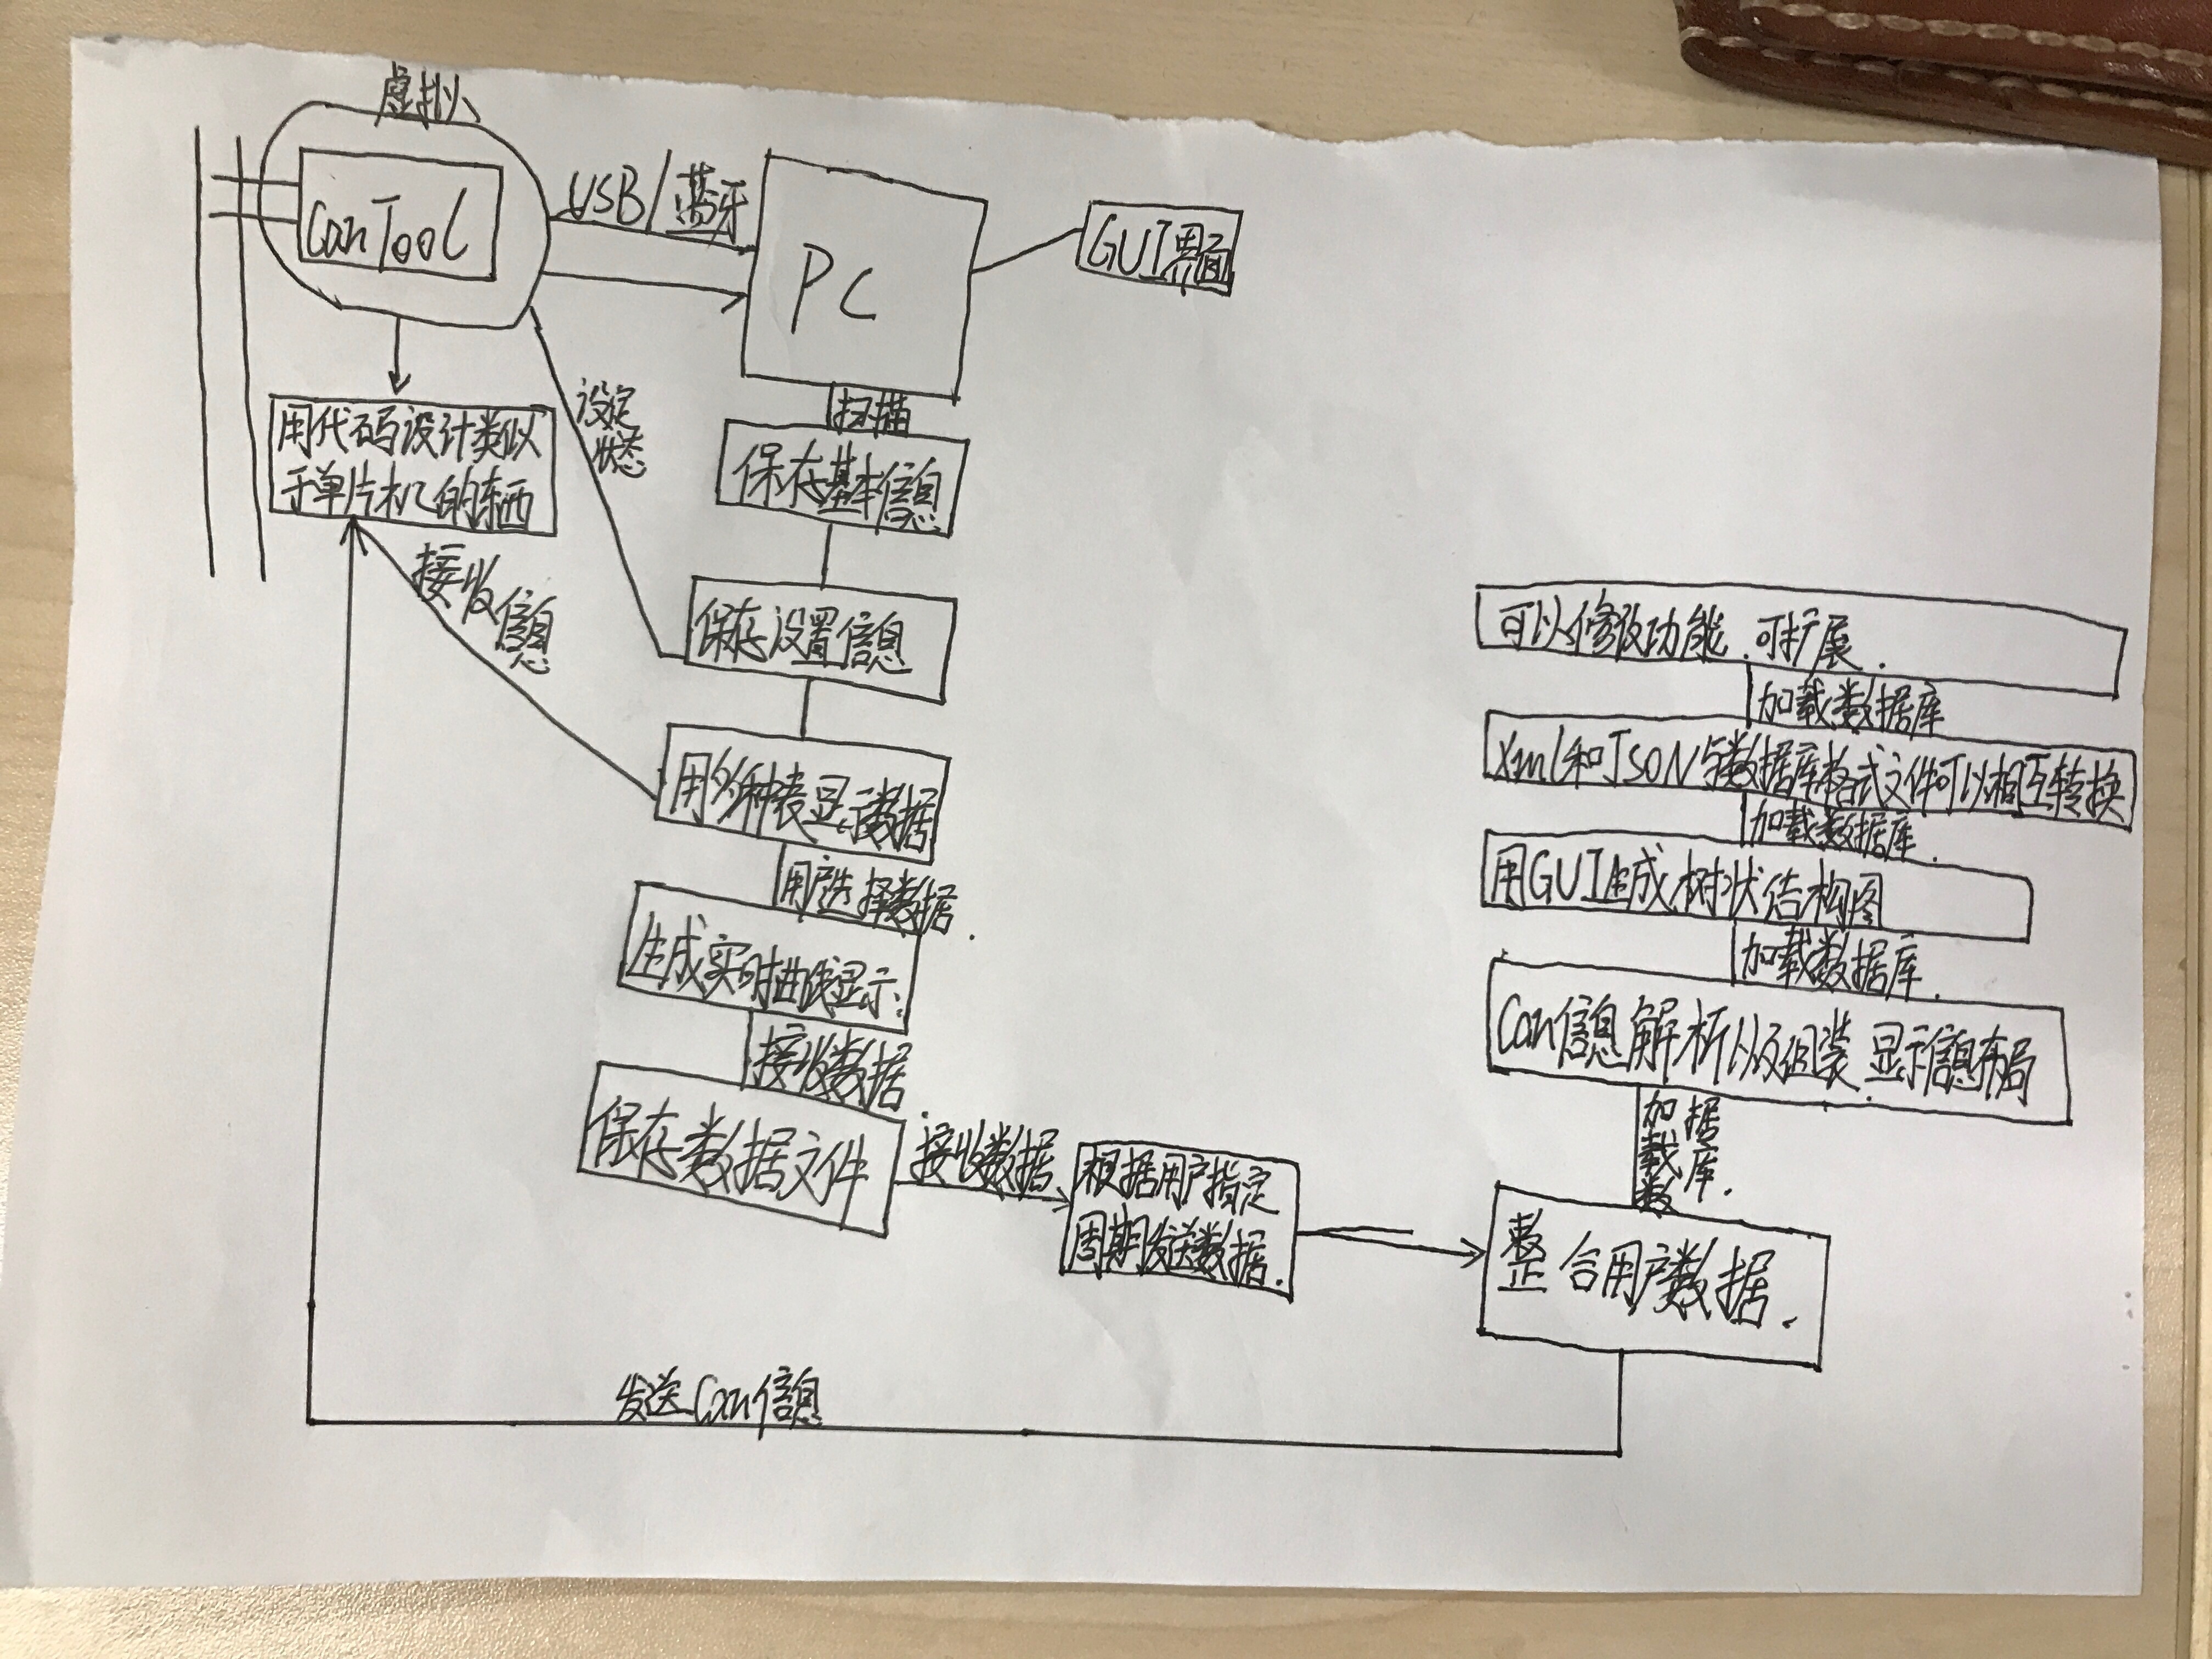 虚拟
CanTool
USB/蓝牙
PC
GUI界面
用代码设计类似
于单片机的东西
设定
状态
扫描
保存基本信息
接收信息
保存设置信息
用多种表显示数据
用户选择数据.
生成实时曲线显示.
接收数据.
保存数据文件
接收数据
根据用户指定
周期发送数据.
可以修改功能.可扩展.
加载数据库
Xml和JSON与数据库格式文件可以相互转换
加载数据库.
用GUI生成树状结构图
加载数据库.
Can信息解析以及组装.显示信息布局
加载数据库.
整合用户数据.
发送Can信息